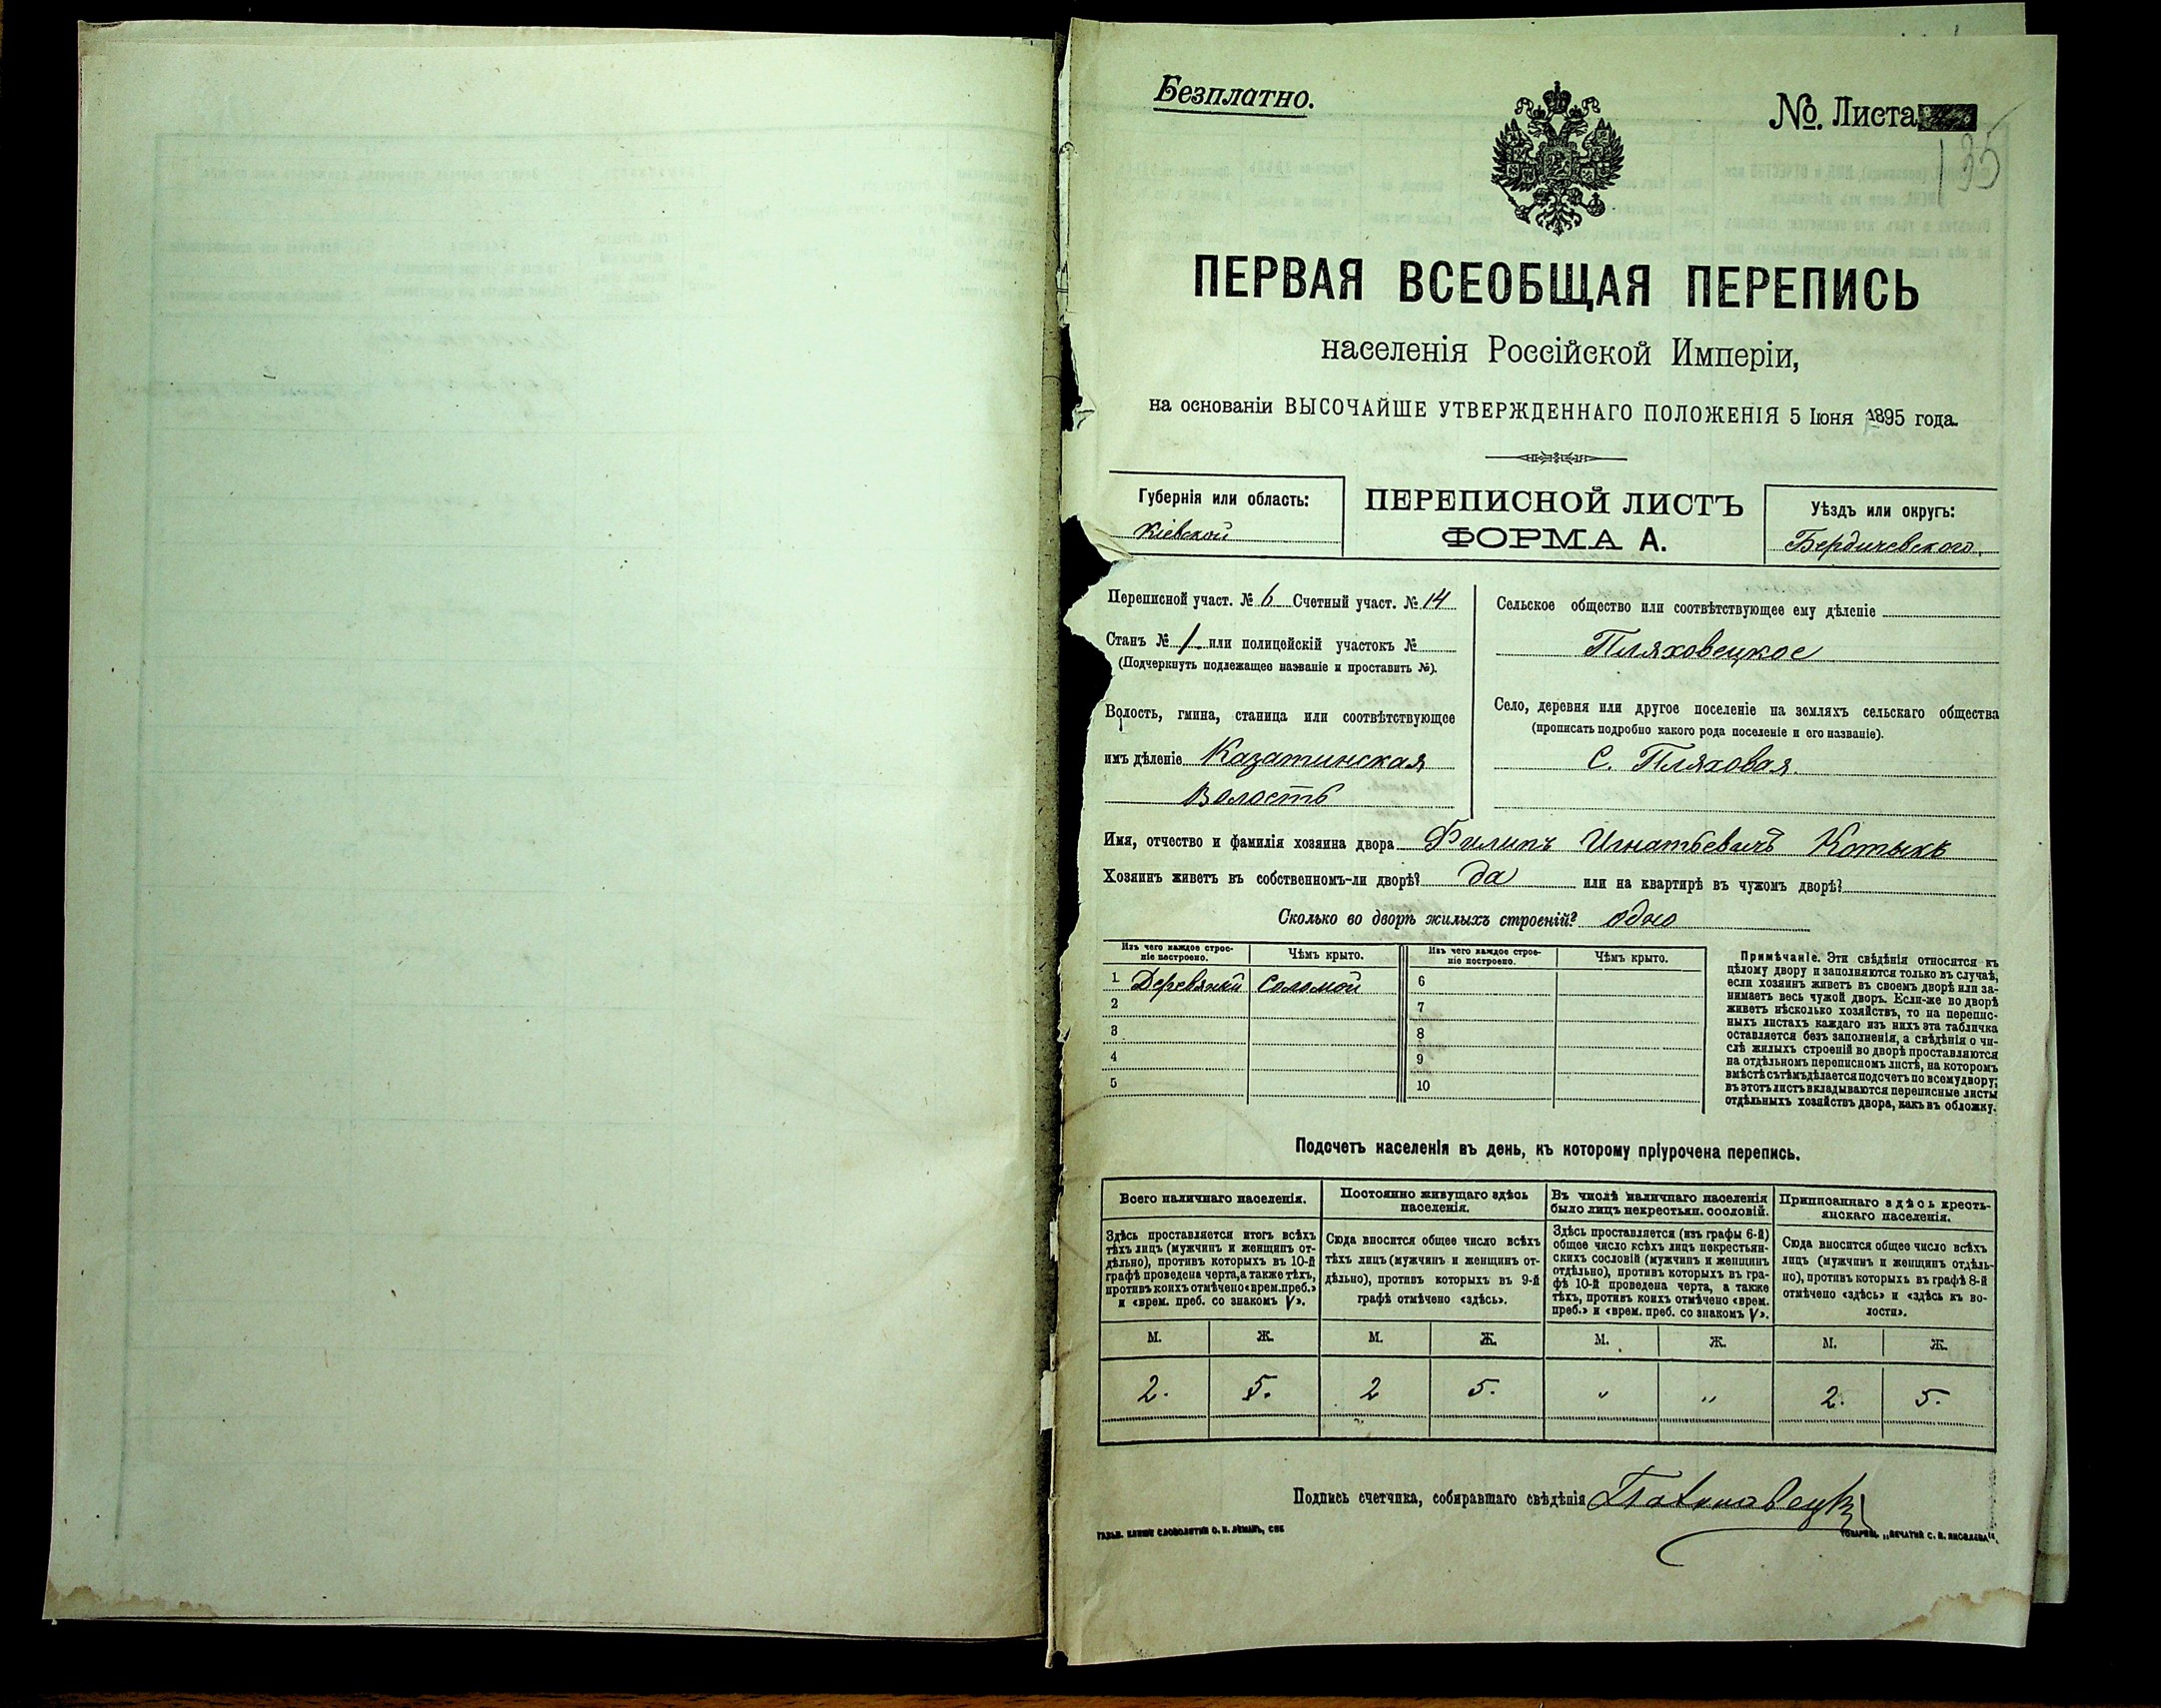 Безплатно.
№. Листа
135
ПЕРВАЯ ВСЕОБЩАЯ ПЕРЕПИСЬ
населенія Россійской Имперіи,
на основаніи ВЫСОЧАЙШЕ УТВЕРЖДЕННАГО ПОЛОЖЕНІЯ 5 Іюня 1895 года.
Губернія или область:
Кіевской
ПЕРЕПИСНОЙ ЛИСТЪ
ФОРМА А.
Уѣздъ или округъ:
Бердичевскаго.
Переписной участ. № 6 Счетный участ. № 14
Станъ № 1. или полицейскій участокъ №
(Подчеркнуть подлежащее названіе и проставить №).
Волость, гмина, станица или соотвѣтствующее
имъ дѣленіе Казатинская
Волость
Сельское общество или соотвѣтствующее ему дѣленіе
Пляховецкое
Село, деревня или другое поселеніе на земляхъ сельскаго общества
(прописать подробно какого рода поселеніе и его названіе).
С. Пляховая.
Имя, отчество и фамилія хозяина двора Филипъ Игнатьевичъ Котыкъ
Хозяинъ живетъ въ собственномъ-ли дворѣ? да или на квартирѣ въ чужомъ дворѣ?
Сколько во дворѣ жилыхъ строеній? одно
Изъ чего каждое строе-
ніе построено.
Чѣмъ крыто.
Изъ чего каждое строе-
ніе построено.
Чѣмъ крыто.
1 Деревяный Соломой
2
3
4
5
6
7
8
9
10
Примѣчаніе. Эти свѣдѣнія относятся къ
цѣлому двору и заполняются только въ случаѣ,
если хозяинъ живетъ въ своемъ дворѣ или за-
нимаетъ весь чужой дворъ. Если-же во дворѣ
живетъ нѣсколько хозяйствъ, то на перепис-
ныхъ листахъ каждаго изъ нихъ эта табличка
оставляется безъ заполненія, а свѣдѣнія о чи-
слѣ жилыхъ строеній во дворѣ проставляются
на отдѣльномъ переписномъ листѣ, на которомъ
вмѣстѣ съ тѣмъ дѣлается подсчетъ по всему двору;
въ этотъ листъ вкладываются переписные листы
отдѣльныхъ хозяйствъ двора, какъ въ обложку.
Подсчетъ населенія въ день, къ которому пріурочена перепись.
Всего наличнаго населенія.
Здѣсь проставляется итогъ всѣхъ
тѣхъ лицъ (мужчинъ и женщинъ от-
дѣльно), противъ которыхъ въ 10-й
графѣ проведена черта, а также тѣхъ,
противъ коихъ отмѣчено «врем. преб.»
и «врем. преб. со знакомъ V».
Постоянно живущаго здѣсь
населенія.
Сюда вносится общее число всѣхъ
тѣхъ лицъ (мужчинъ и женщинъ от-
дѣльно), противъ которыхъ въ 9-й
графѣ отмѣчено «здѣсь».
Въ числѣ наличнаго населенія
было лицъ некрестьян. сословій.
Здѣсь проставляется (изъ графы 6-й)
общее число всѣхъ лицъ некрестьян-
скихъ сословій (мужчинъ и женщинъ
отдѣльно), противъ которыхъ въ гра-
фѣ 10-й проведена черта, а также
тѣхъ, противъ коихъ отмѣчено «врем.
преб.» и «врем. преб. со знакомъ V».
Приписаннаго здѣсь кресть-
янскаго населенія.
Сюда вносится общее число всѣхъ
лицъ (мужчинъ и женщинъ отдѣль-
но), противъ которыхъ въ графѣ 8-й
отмѣчено «здѣсь» и «здѣсь къ во-
лости».
М. Ж. М. Ж. М. Ж. М. Ж.
2. 5. 2 5. " " 2. 5.
Подпись счетчика, собиравшаго свѣдѣнія
ГАЛЬВ. КЛИШЕ СЛОВОЛИТНИ О. И. ЛЕМАНЪ, СПБ
ТОВАРИЩ. „ПЕЧАТНЯ С. П. ЯКОВЛЕВА".